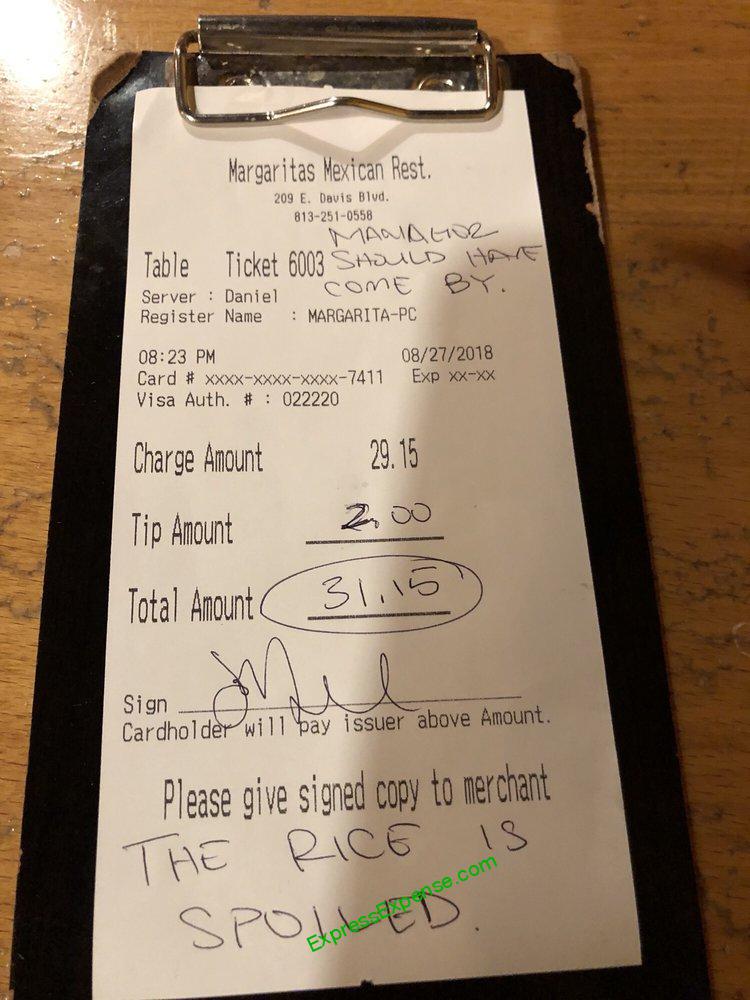 Margaritas Mexican Rest.
209 E. Davis Blvd.
813-251-0558
MANAGER
SHOULD HAVE
COME BY.
Table Ticket 6003
Server : Daniel
Register Name : MARGARITA-PC
08:23 PM 08/27/2018
Card # xxxx-xxxx-xxxx-7411 Exp xx-xx
Visa Auth. # : 022220
Charge Amount 29.15
Tip Amount 2.00
Total Amount 31.15
Sign
Cardholder will pay issuer above Amount.
Please give signed copy to merchant
THE RICE IS
SPOILED.
ExpressExpense.com